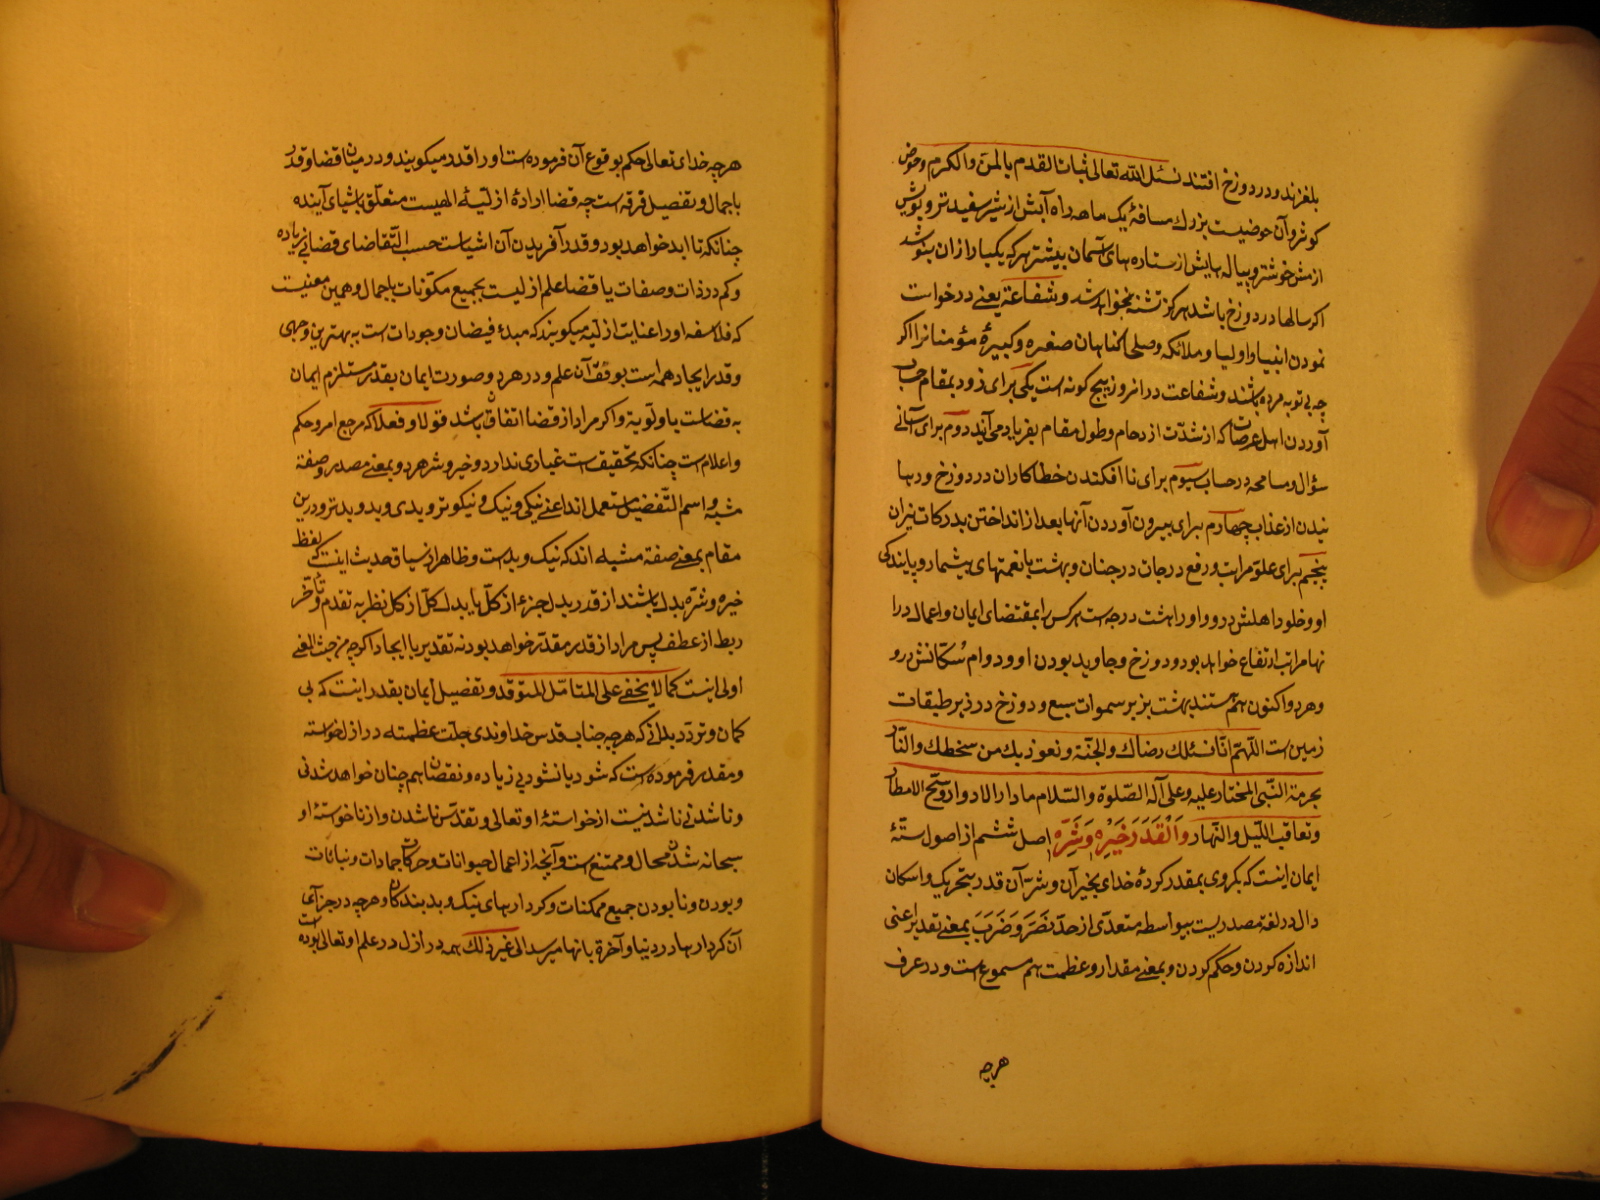 بلغزند و در دوزخ افتند نسئل الله تعالی ثبات القدم بالمن والکرم و حوض
کوثر و آن حوضیست بزرك مسافهٔ یک ماهه راه آبش از شیر سفیدتر و بویش
از مشك خوشتر و پیاله هایش از ستاره های آسمان بیشتر هر که یکبار ازان بنوشد
اکر سالها در دوزخ باشد هرکز تشنه نخواهد شد و شفاعة یعنے درخواست
نمودن انبیا و اولیا و ملائکه و صلحا کناهان صغیره و کبیرهٔ مؤمنانرا اکر
چه بی توبه مرده باشند و شفاعت در انروز پنج کونه است یکی برای زود بمقام حساب
آوردن اهل عرصات که از شدّت ازدحام و طول مقام بفریاد می آیند دوم برای آسانے
سؤال و مسامحه در حساب سیوم برای نا افکندن خطاکاران در دوزخ و رها
نیدن از عذاب چهارم برای بیرون آوردن آنها بعد از انداختن بدرکات نیران
پنجم برای علوّ مراتب و رفع درجات در جنان و بهشت با نعمتهای بیشمار و پایندکی
او و خلود اهلش درو و او را هشت درجه است هر کس را بمقتضای ایمان و اعمال درا
نها مراتب ارتفاع خواهد بود و دوزخ و جاوید بودن او و دوام سُکّانش درو
و هر دو اکنون هم هستند بهشت بزبر سموات سبع و دوزخ در زیر طبقات
زمین است اللّهمّ انّا نسئلك رضاك والجنّة و نعوذ بك من سخطك والنّار
بحرمة النّبی المختار علیه و علی آله الصّلوة والسّلام ما دار الادوار و سحّ الامطار
و تعاقب اللّیل والنّهار وَالْقَدَرِ خَیْرِهِ وَشَرِّهِ اصل ششم از اصول ستّهٔ
ایمان اینست که بکروی بمقدر کردهٔ خدای بخیر آن و شرّ آن قدر بتحریك و اسکان
دال در لغة مصدریست بیواسطه متعدّی از حدّ نَصَرَ وَ ضَرَبَ بمعنے تقدیر اعنی
اندازه کردن و حکم کردن و بمعنے مقدار و عظمت هم مسموع است و در عرف
هرچه
هرچه خدای تعالی حکم بوقوع آن فرموده است او را قدر میکویند و در میان قضا و قدر
باجمال و تفصیل فرقه است چه قضا ارادهٔ ازلیّهٔ الهیست متعلّق باشیای آینده
چنانکه تا ابد خواهد بود و قدر آفریدن آن اشیاست حسب التّقاضای قضا بے زیاده
و کم در ذات و صفات یا قضا علم ازلیست بجمیع مکوّنات باجمال و همین معنیست
که فلاسفه او را عنایت ازلیّه میکویند که مبدء فیضان وجودات است به بهترین وجهی
و قدر ایجاد همه است بوفق آن علم و در هر دو صورت ایمان بقدر مستلزم ایمان
به قضاست باولویّة و اکر مراد از قضا اتفاق باشد قولا و فعلا که مرجع امر و حکم
و اعلام است چنانکه تحقیق است غباری ندارد و خیر و شر هر دو بمعنے مصدر و صفة
مشبه و اسم التّفضیل مستعمل اند اعنے نیکی و نیک و نیکوتر و بدی و بد و بدتر و درین
مقام بمعنے صفة مشبه اند که نیک و بد است و ظاهر از سیاق حدیث اینست که لفظ
خیره و شرّه بدل باشند از قدر بدل جزء از کلّ یا بدل کلّ از کل نظر به تقدم و تأخّر
ربط از عطف پس مراد از قدر مقدّر خواهد بود نه تقدیر یا ایجاد اکرچه من حیث المعنے
اولی اینست کما لا یخفے علی المتامّل المتوقّد و تفصیل ایمان بقدر اینست که بی
کمان و تردّد بدانے که هرچه جناب قدس خداوندی جلّت عظمته در ازل خواسته
و مقدر فرموده است که شود یا نشود بی زیاده و نقصان هم چنان خواهد شدنی
و ناشدنی ناشدنیست از خواستهٔ او تعالی و تقدّس ناشدن و از ناخواستهٔ او
سبحانه شدن محال و ممتنع است و آنچه از اعمال حیوانات و حرکات جمادات و نباتات
و بودن و نابودن جمیع ممکنات و کردارهای نیک و بد بندکان و هرچه در جزآی
آن کردارها در دنیا و آخرة بانها میرسد الی غیر ذلك همه در ازل در علم او تعالی بوده است